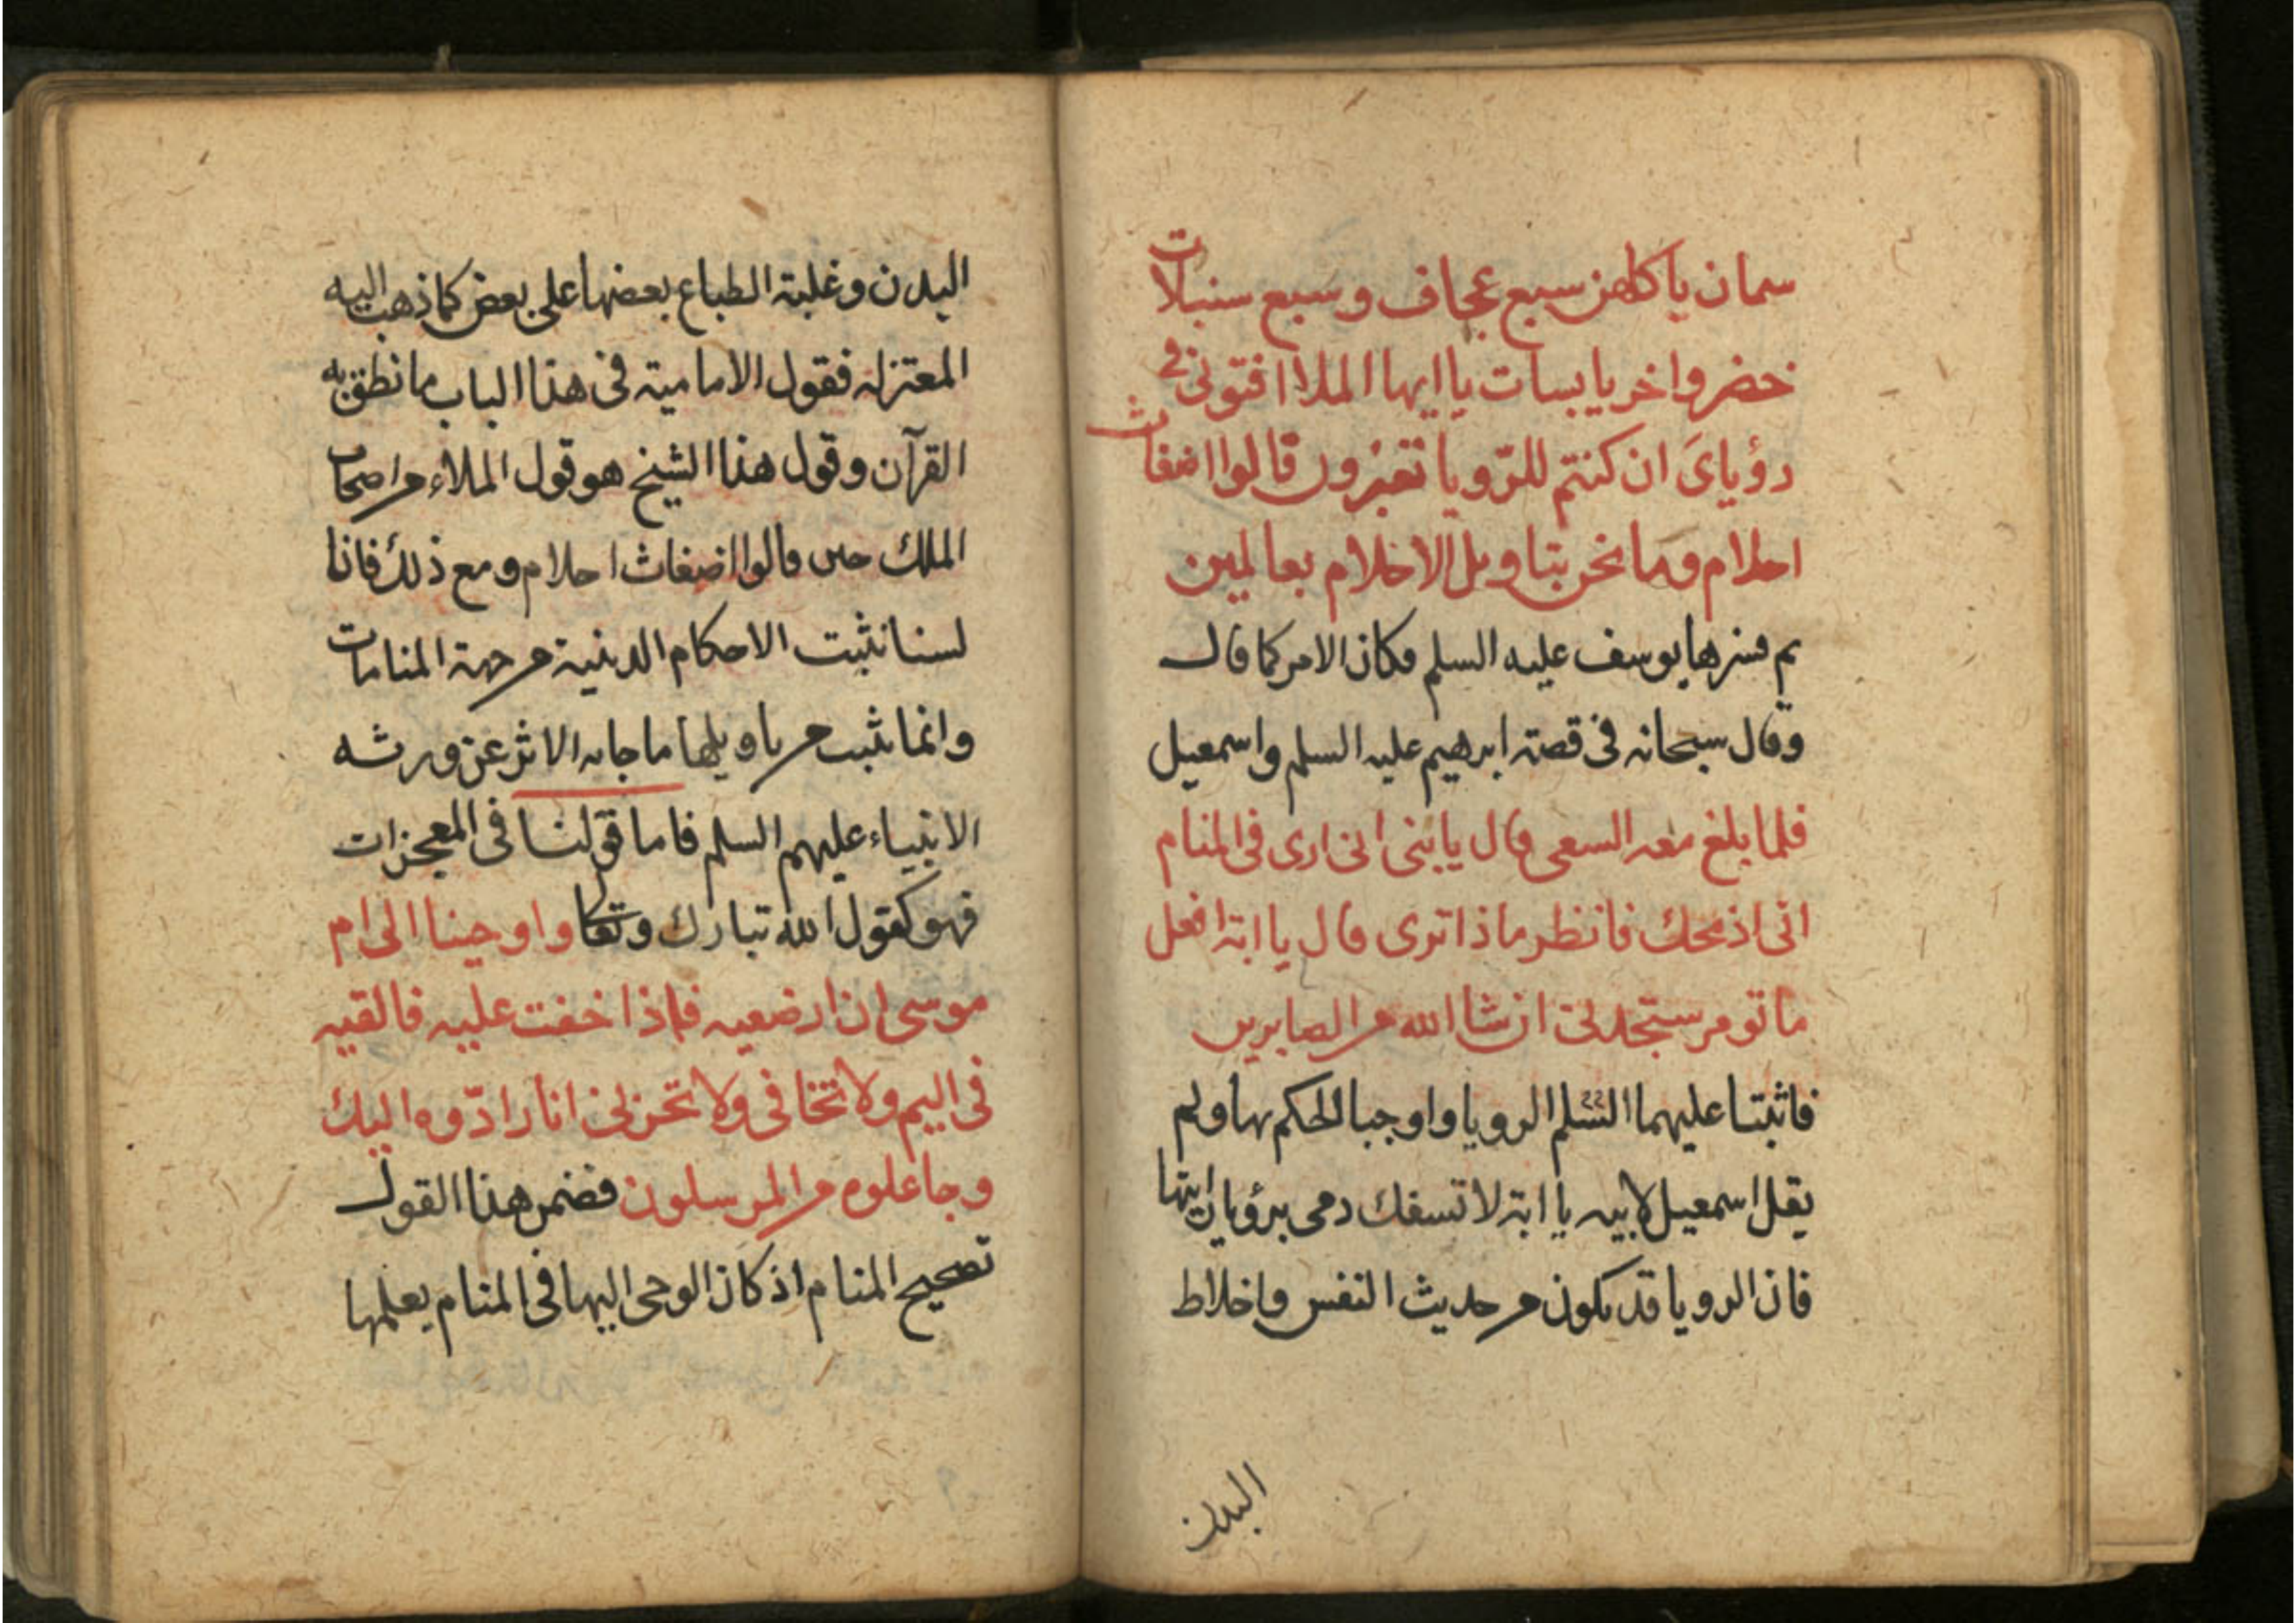 سمان ياكلهن سبع عجاف وسبع سنبلات
خضر واخر يابسات يا ايها الملا افتونى فى
رؤياىَ ان كنتم للرّويا تعبرون قالوا اضغاث
احلام وما نحن بتاويل الاحلام بعالمين
ثم فسرها يوسف عليه السلم فكان الامر كما قال
وقال سبحانه فى قصة ابرهيم عليه السلم واسمعيل
فلما بلغ معه السعى قال يا بنى انى ارى فى المنام
انى اذبحك فانظر ماذا ترى قال يا ابة افعل
ما تومر ستجدنى ان شا الله من الصابرين
فاثبتا عليهما السلم الرويا واوجبا الحكم بها ولم
يقل اسمعيل لابيه يا ابة لا تسفك دمى برؤيا رايتها
فان الرويا قد يكون من حديث النفس واخلاط
البدن
البدن وغلبة الطباع بعضها على بعض كما ذهب اليه
المعتزله فقول الامامية فى هذا الباب ما نطق به
القرآن وقول هذا الشيخ هو قول الملاء من اصحاب
الملك حين قالوا اضغاث احلام ومع ذلك فانا
لسنا نثبت الاحكام الدينية من جهة المنامات
وانما نثبت من تاويلها ما جا به الاثر عن ورثه
الانبياء عليهم السلم فاما قولنا فى المعجزات
فهو كقول الله تبارك وتعالى واوحينا الى ام
موسى ان ارضعيه فاذا خفت عليه فالقيه
فى اليم ولا تخافى ولا تحزنى انا رادّوه اليك
وجاعلوه من المرسلون فضمن هذا القول
تصحيح المنام اذ كان الوحى اليها فى المنام يعلمها